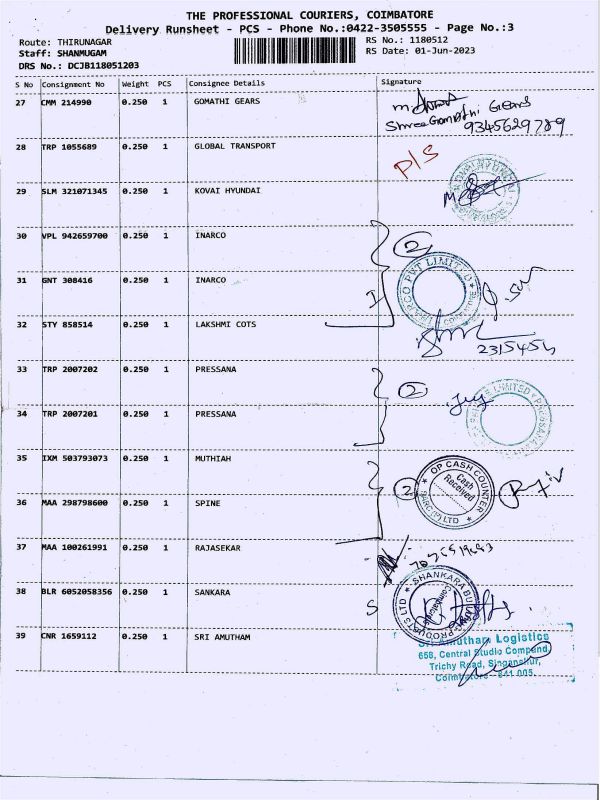 THE PROFESSIONAL COURIERS, COIMBATORE
Delivery Runsheet - PCS - Phone No.:0422-3505555 - Page No.:3
Route: THIRUNAGAR RS No.: 1180512
Staff: SHANMUGAM RS Date: 01-Jun-2023
DRS No.: DCJB118051203
S No Consignment No Weight PCS Consignee Details Signature
27 CMM 214990 0.250 1 GOMATHI GEARS
Shree Gomathi Gears
9345629789
28 TRP 1055689 0.250 1 GLOBAL TRANSPORT P/S
29 SLM 321071345 0.250 1 KOVAI HYUNDAI
30 VPL 942659700 0.250 1 INARCO 2
INARCO PVT LIMITED
31 GNT 308416 0.250 1 INARCO
32 STY 858514 0.250 1 LAKSHMI COTS
33 TRP 2007202 0.250 1 PRESSANA 2
LIMITED
34 TRP 2007201 0.250 1 PRESSANA
35 IXM 503793073 0.250 1 MUTHIAH
OP CASH COUNTER
Cash Received
2
36 MAA 298798600 0.250 1 SPINE
37 MAA 100261991 0.250 1 RAJASEKAR
38 BLR 6052058356 0.250 1 SANKARA S
SHANKARA BUILDING PRODUCTS LTD
Coimbatore
39 CNR 1659112 0.250 1 SRI AMUTHAM
Sri Amutham Logistics
658, Central Studio Compound,
Trichy Road, Singanallur,
Coimbatore - 641 005.